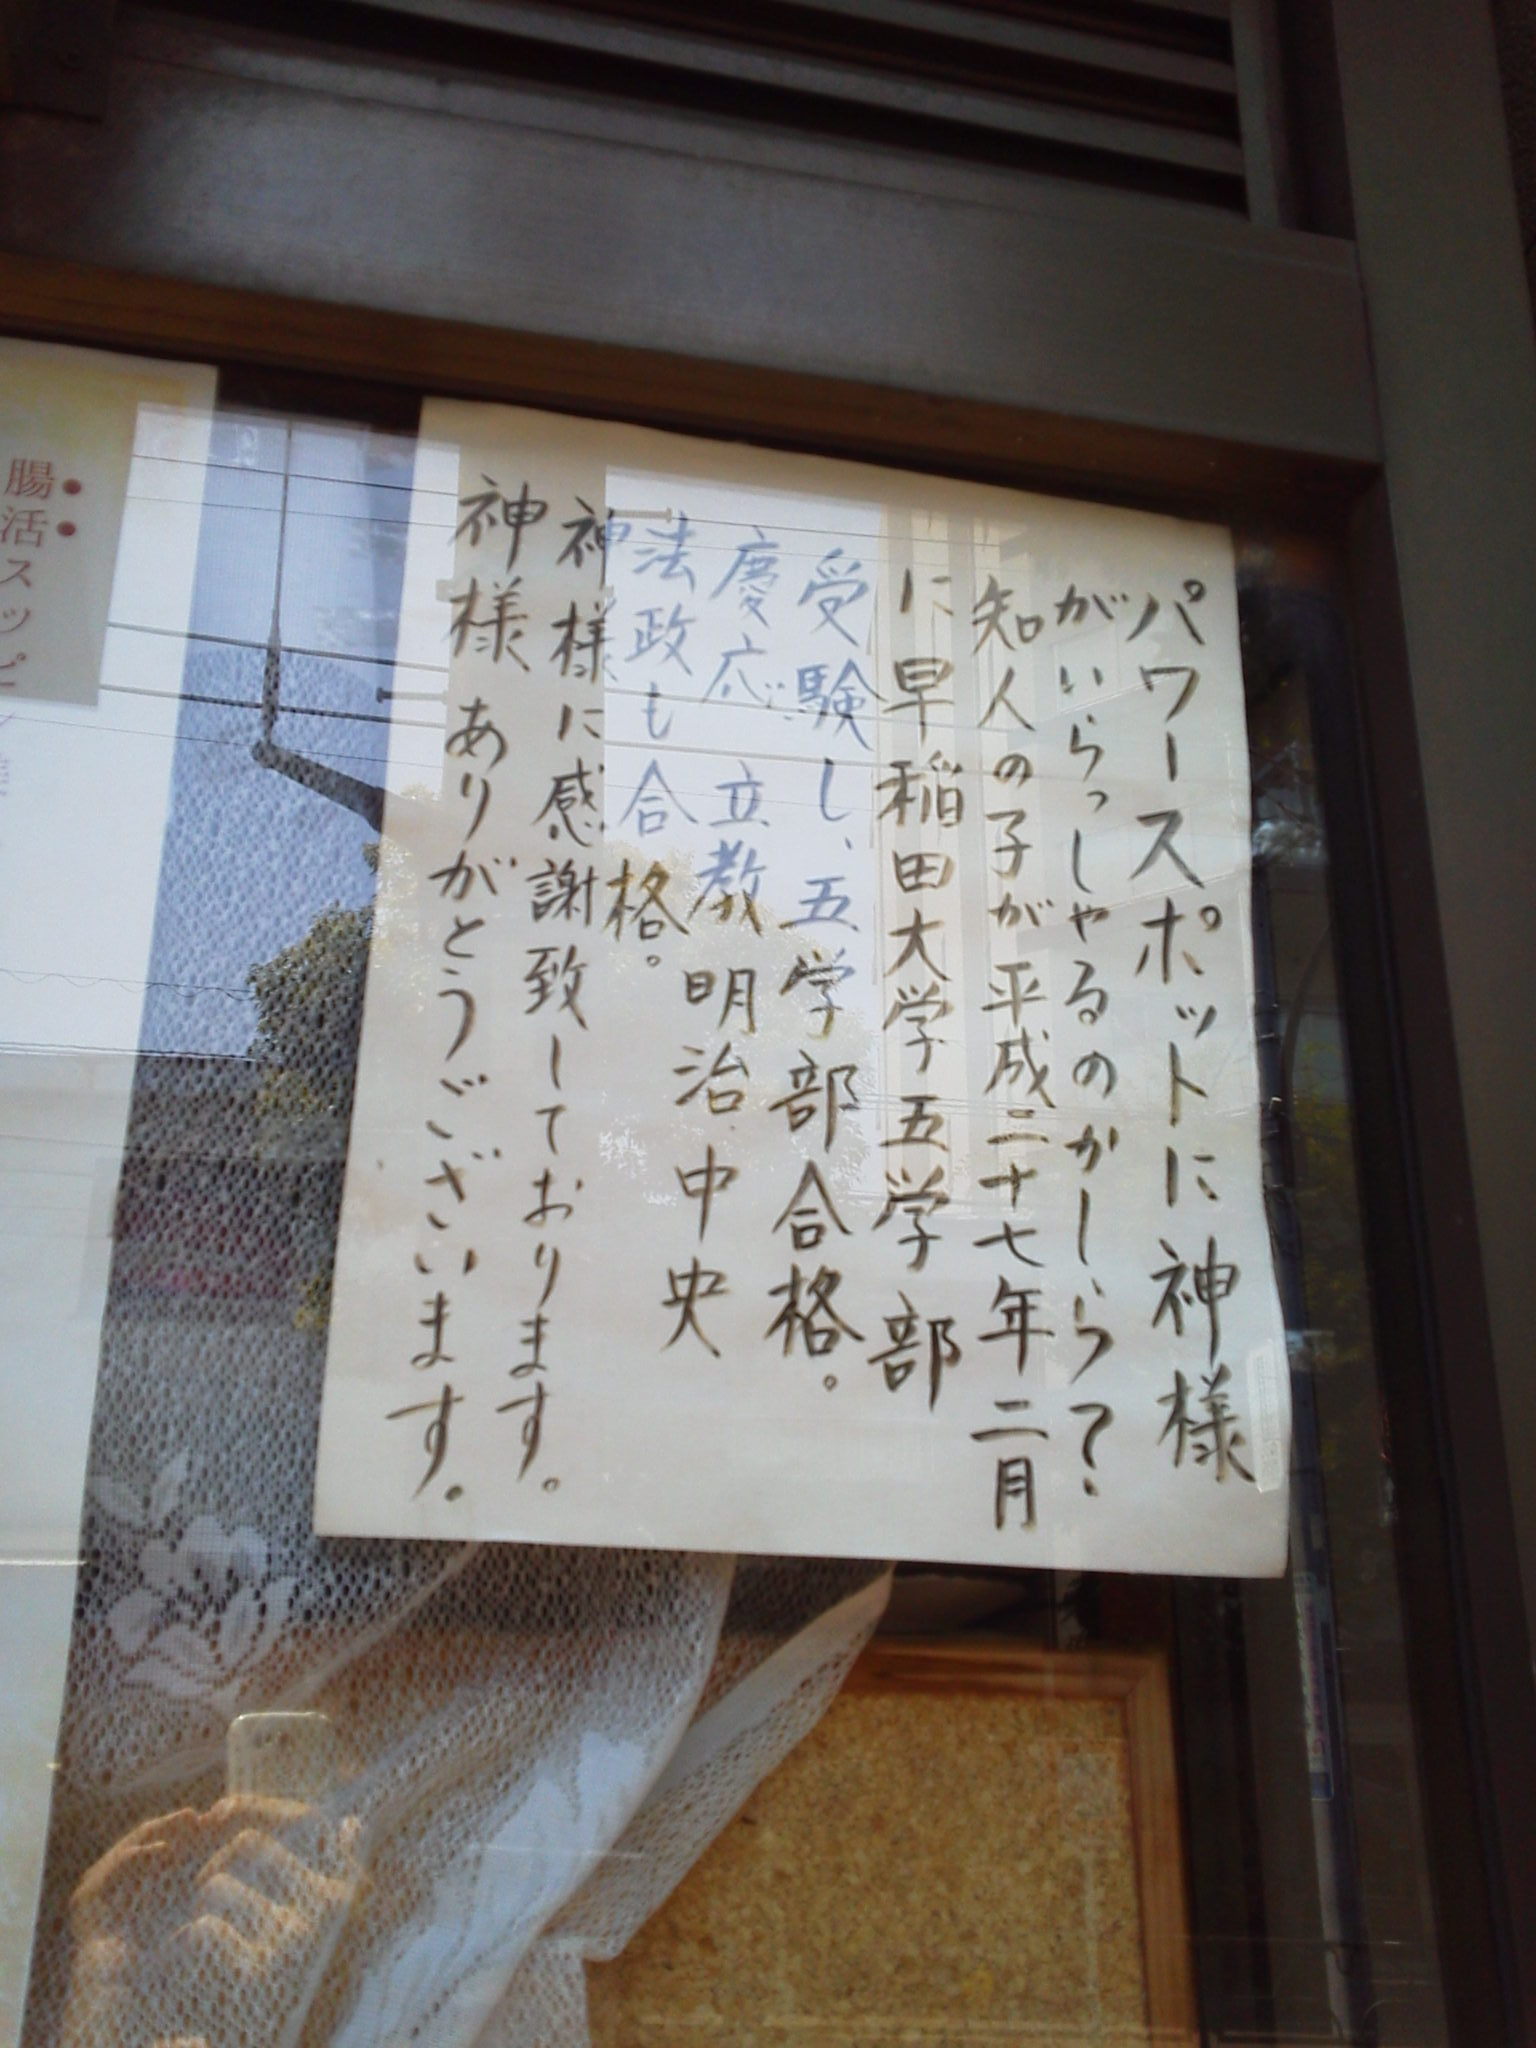 パワースポットに神様
がいらっしゃるのかしら?
知人の子が平成二十七年二月
に早稲田大学五学部
受験し、五学部合格。
慶応 立教 明治 中央
法政も合格。
神様に感謝致しております。
神様 ありがとうございます。
腸活スッピ